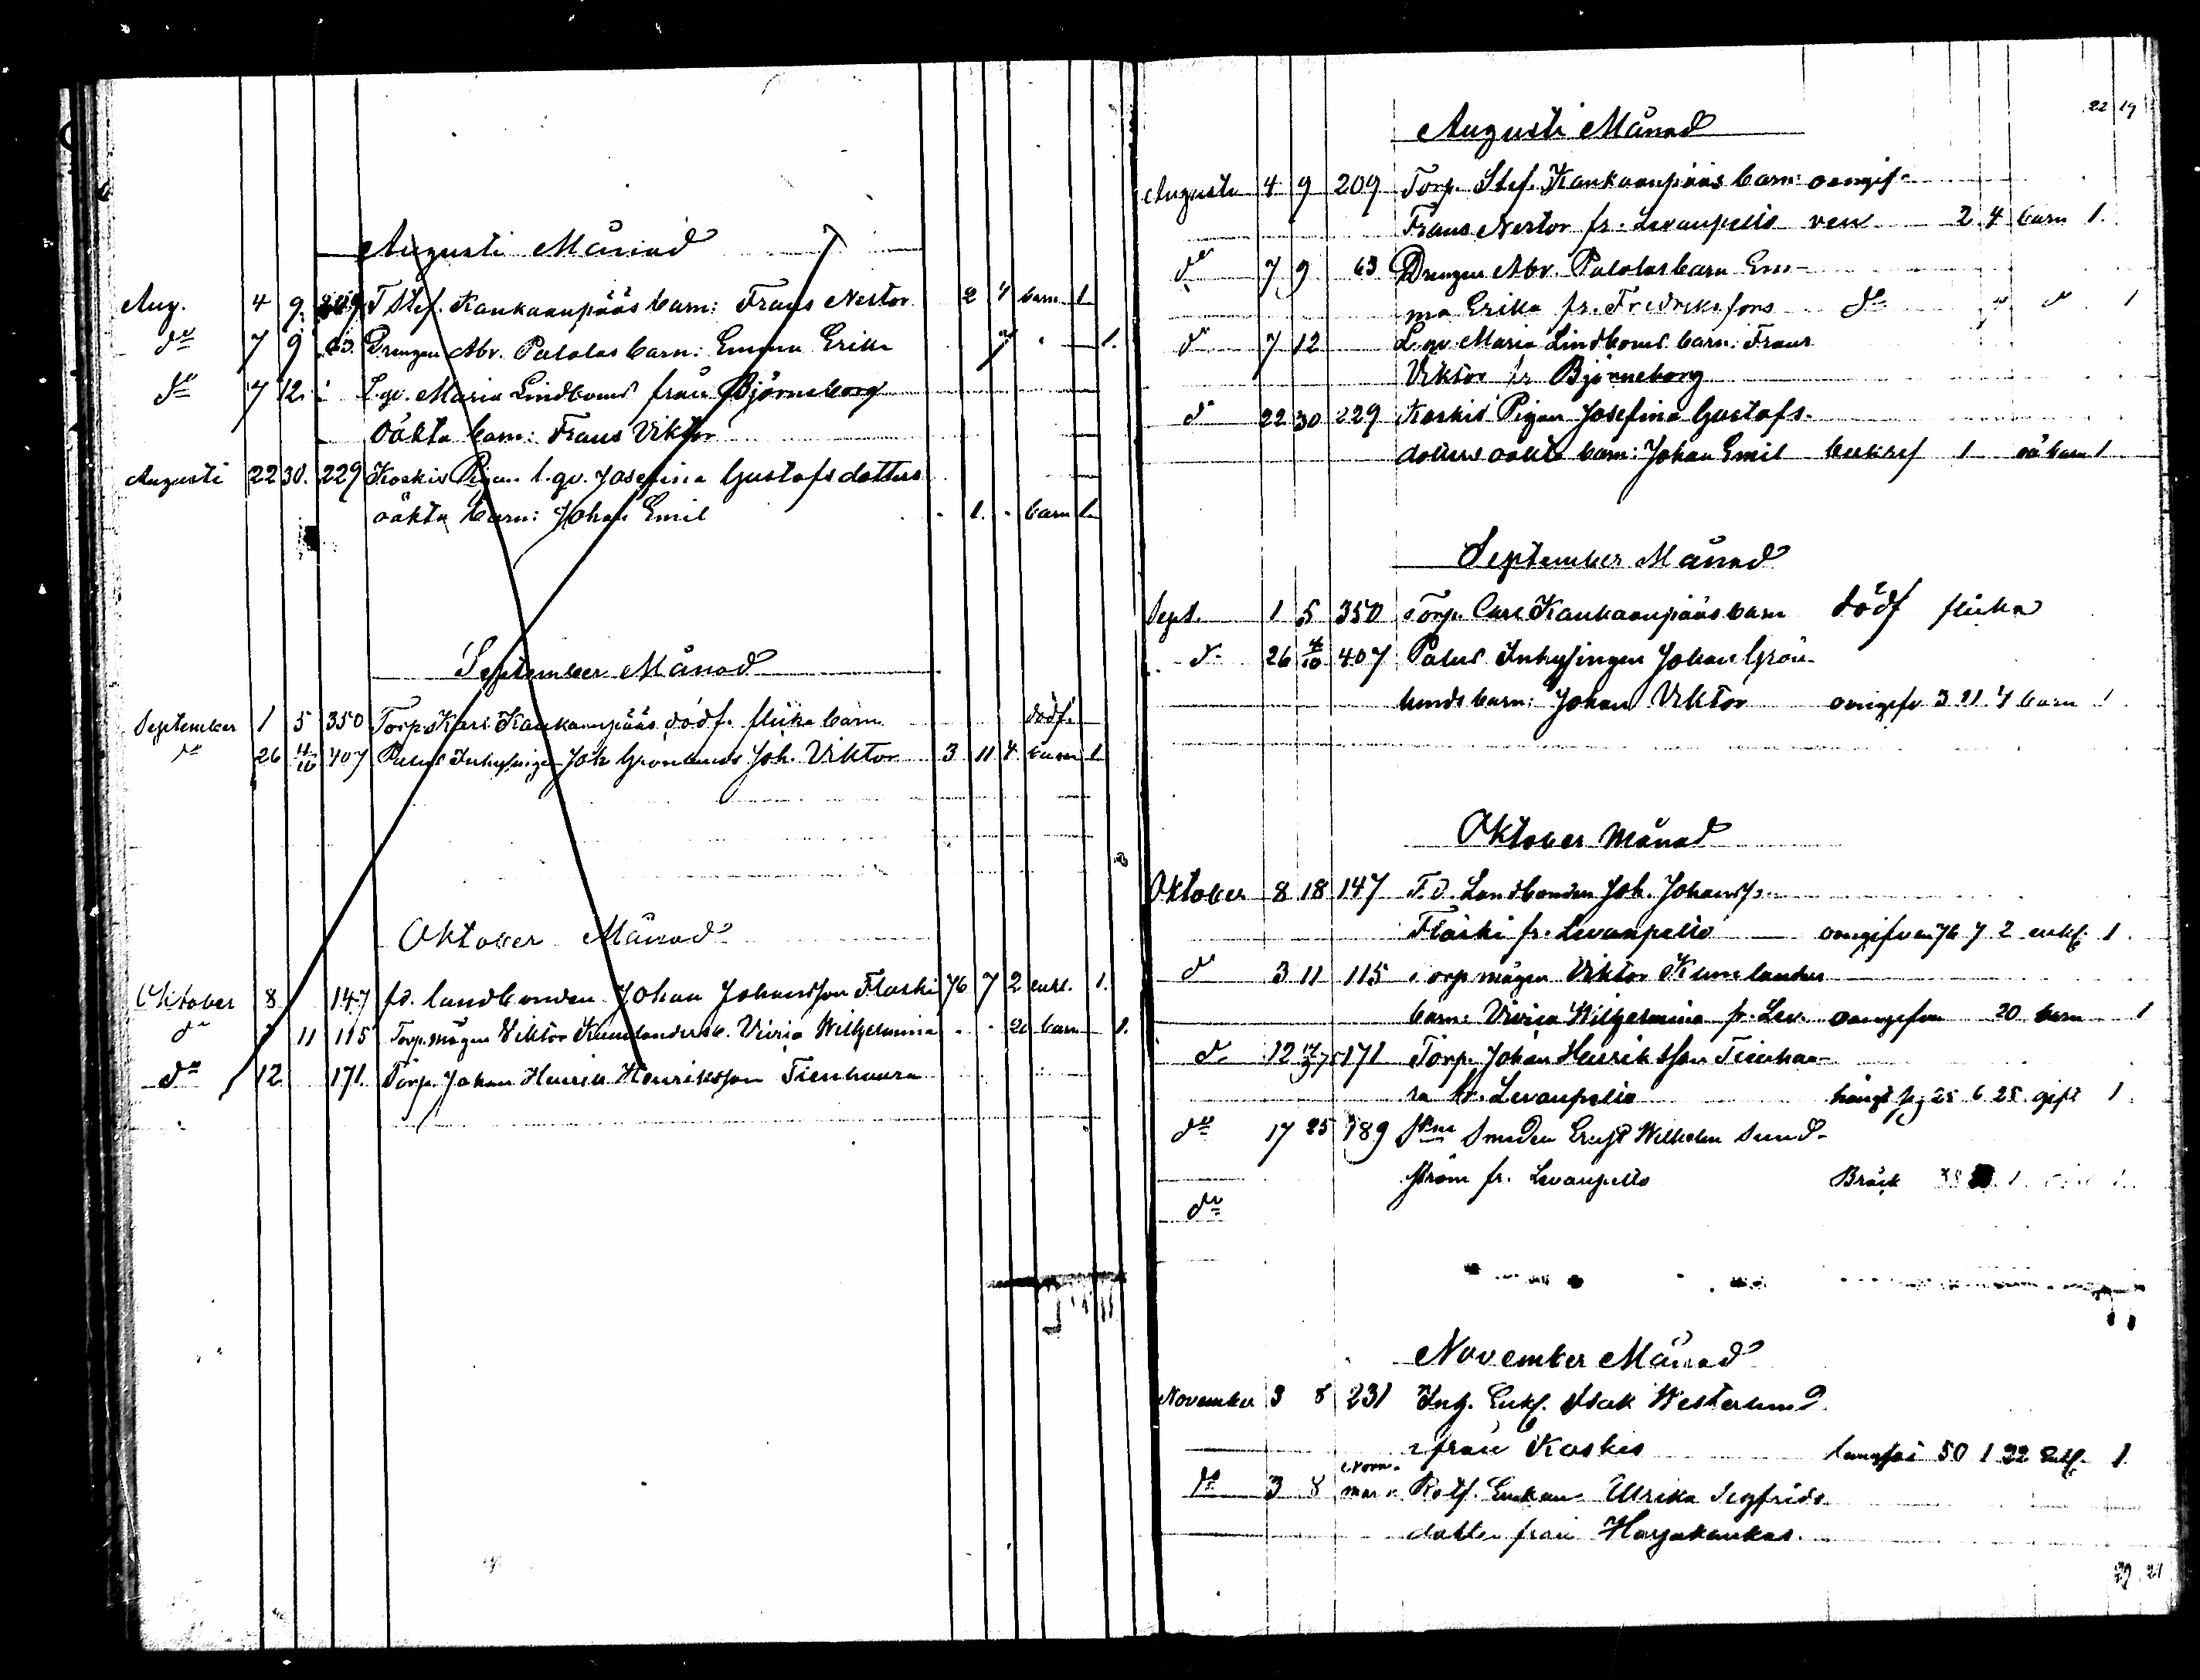 Augusti Månad
Aug. 4 9. 209 T Stef. Kankaanpääs barn: Frans Nestor 2 4 barn 1
do 7 9 63. Drengen Abr. Palolas barn: Emma Erika 1.
do 7 12. L. qv. Maria Lindboms från Björneborg
oäkta barn: Frans Viktor
Augusti 22 30. 229 Koskis Pigan l. qv. Josefina Gustafsdotters
oäkta barn: Johan Emil 1. barn 1
September Månad
September 1 5 350 Torp. Karl Kankaanpääs dödf. flicka barn dödf.
do 26 4/10 407 Palus Inhysingen Joh Grönlunds Joh. Viktor 3 11 4 barn 1
Oktober Månad
Oktober 8 147 fd. landbonden Johan Johansson Flaski 76 7 2 enkl. 1.
do 11 115 Torp. mågen Viktor Kumlanders b. Viviga Wilhelmina 20 barn 1.
do 12 171. Torp. Johan Henrik Henriksson Tienhaara
22 19
Augusti Månad
Augusti 4 9 209 Torp. Stef. Kankaanpääs barn: oangif-
Frans Nestor fr. Levanpelto ven 2 4 barn 1.
do 7 9 63 Drengen Abr. Palolas barn Em-
ma Erika fr. Fredriksfors do 1
do 7 12 L. qv. Maria Lindboms barn: Frans
Viktor fr Björneborg
do 22 30 229 Koskis Pigan Josefina Gustafs-
dotters oäkta barn: Johan Emil 1 oä barn 1
September Månad
Sept. 1 5 350 Torp. Carl Kankaanpääs barn dödf flicka
do 26 4/10 407 Palus Inhysingen Johan Grön-
lunds barn: Johan Viktor oangifv 3 11 4 barn 1
Oktober Månad
Oktober 8 18 147 F. d. Landbonden Joh. Johanss.
Flaski fr. Levanpelto oangifven 76 7 2 enkl. 1.
do 3 11 115 Torp mågen Viktor Kumlanders
barn: Viviga Wilhelmina fr. Lev. oangifven 20 barn 1
do 12 171 Torp. Johan Henriksson Tienhaa-
ra fr. Levanpelto hängt sig 25 6 25 gift 1.
do 17 25 789 Smeden Ernst Wilhelm Sund-
ström fr. Levanpelto Bråck
do
November Månad
November 3 8 231 Inh. Enkl. Isak Westerlund
från Koskis lungsot 50 1 22 Enkl. 1.
Norr-
do 3 8 mark Rotf. Enkan Ulrika Sigfrids
dotter från Harjakankas.
29 21